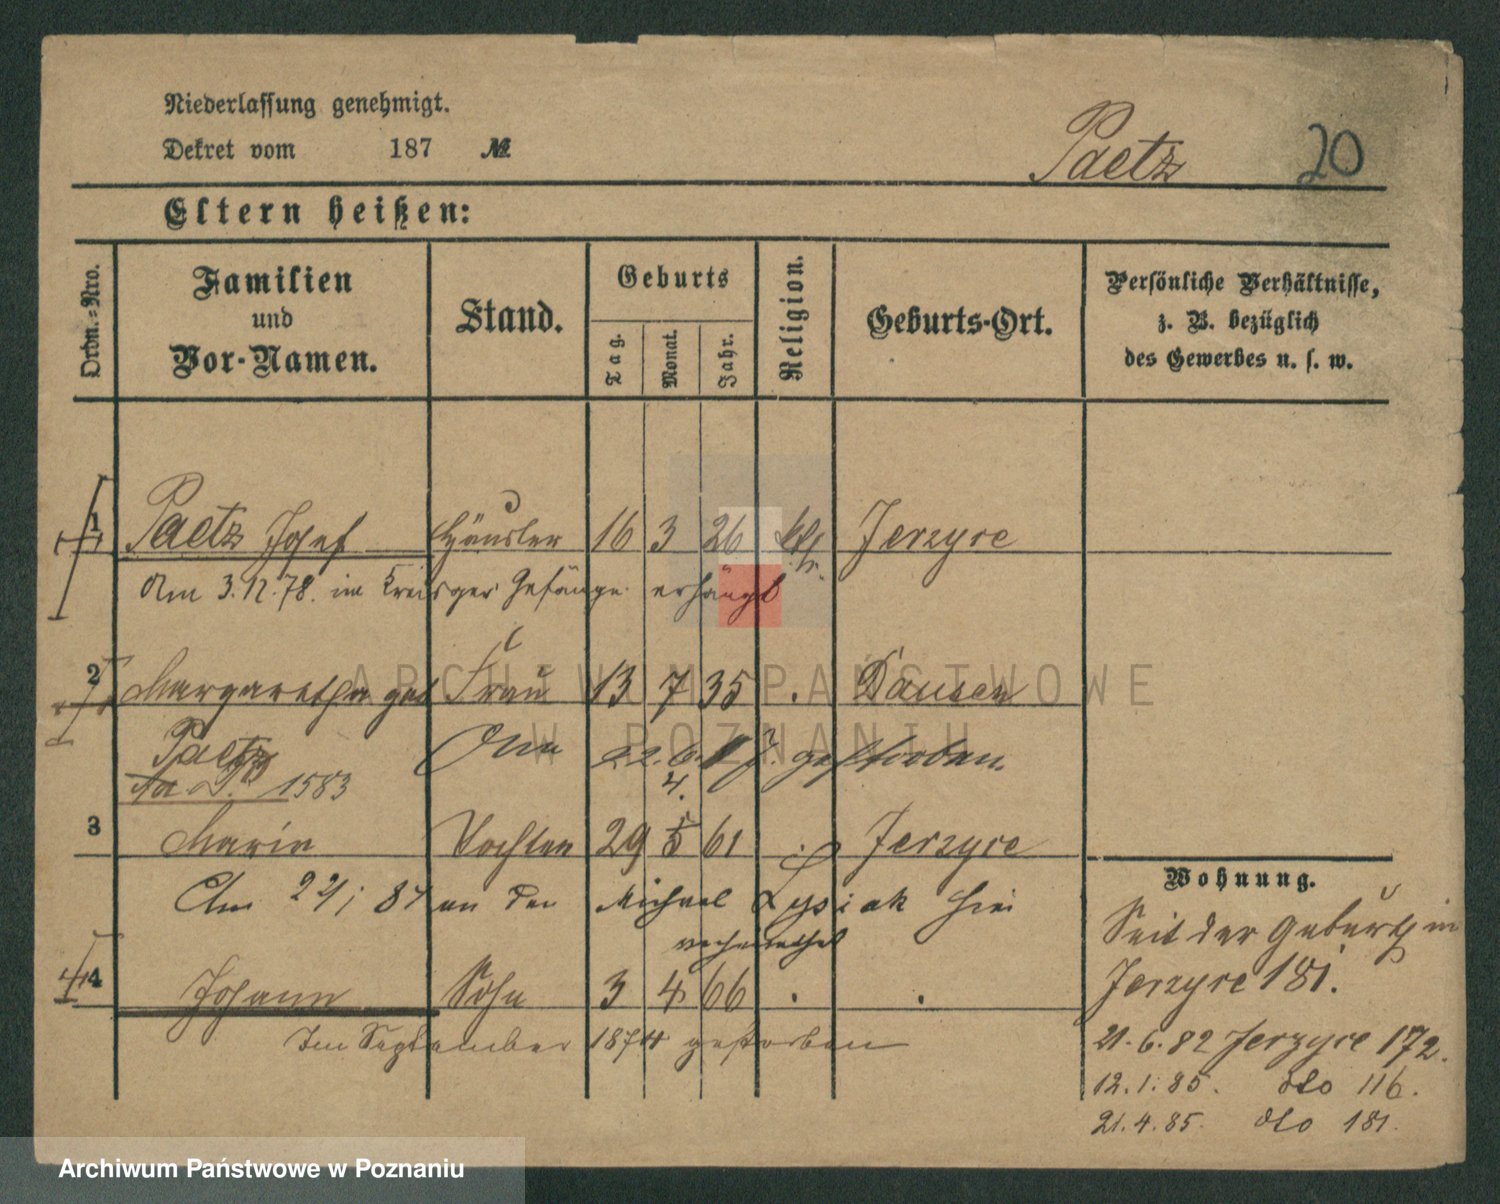 Niederlassung genehmigt.
Dekret vom 187 №
Paetz 20
Eltern heißen:
Ordn.=Nro.
Familien
und
Vor-Namen.
Stand.
Geburts
Tag.
Monat.
Jahr.
Religion.
Geburts-Ort.
Persönliche Verhältnisse,
z. B. bezüglich
des Gewerbes u. s. w.
1 Paetz Josef Häusler 16 3 26 kth. Jerzyce
Am 3.12.78. im Kreisger Gefängn. erhängt
2 Margaretha geb Frau 13 7 35 . Dausen
Paetz 22.6. gestorben.
1583 4.
3 Maria Tochter 29 5 61 . Jerzyce
Am 22/1 84 an den Michael Lysiak hier
verheirathet
4 Johann Sohn 3 4 66 . .
Im September 1874 gestorben
Wohnung.
Seit der Geburt in
Jerzyce 181.
21.6.82 Jerzyce 172.
12.1.85. dto 116.
21.4.85. dto 181.
ARCHIWUM PAŃSTWOWE
W POZNANIU
Archiwum Państwowe w Poznaniu